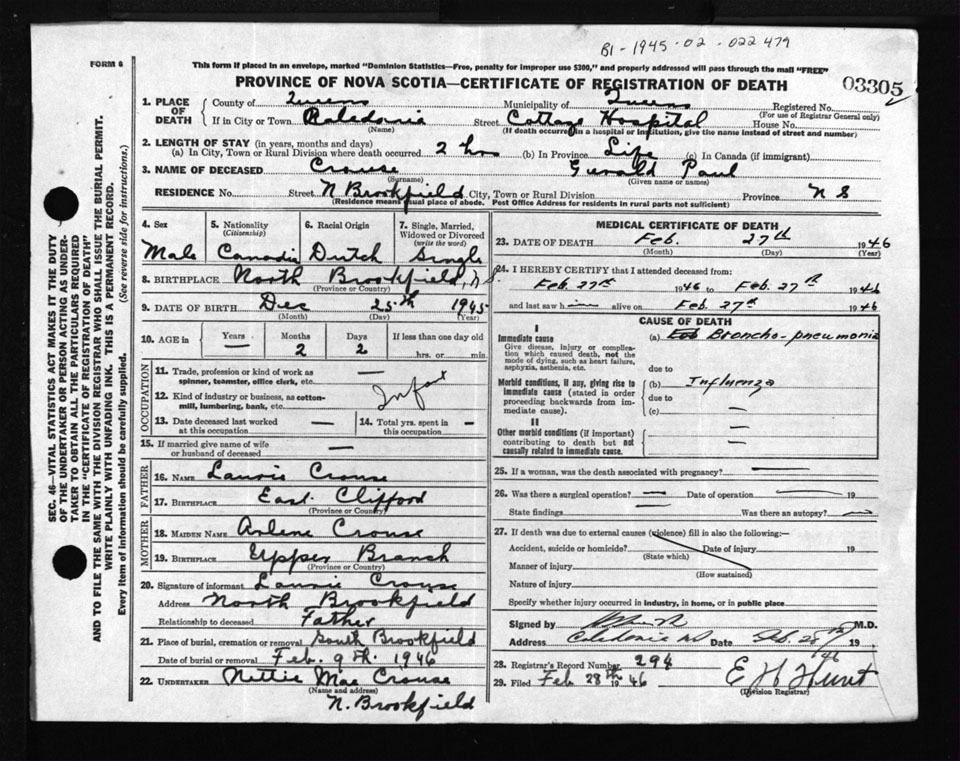 B1-1945-02-022479
FORM 6
This form if placed in an envelope, marked "Dominion Statistics—Free, penalty for improper use $300," and properly addressed will pass through the mail "FREE"
PROVINCE OF NOVA SCOTIA—CERTIFICATE OF REGISTRATION OF DEATH
03305
1. PLACE OF DEATH
County of Queens Municipality of Queens Registered No.
(For use of Registrar General only)
If in City or Town Caledonia Street Cottage Hospital House No.
(Name) (If death occurred in a hospital or institution, give the name instead of street and number)
2. LENGTH OF STAY (in years, months and days)
(a) In City, Town or Rural Division where death occurred 2 hrs (b) In Province Life (c) In Canada (if immigrant)
3. NAME OF DECEASED Crouse Gerald Paul
(Surname) (Given name or names)
RESIDENCE No. Street N Brookfield City, Town or Rural Division Province N S
(Residence means usual place of abode. Post Office Address for residents in rural parts not sufficient)
4. Sex 5. Nationality (Citizenship) 6. Racial Origin 7. Single, Married, Widowed or Divorced (write the word)
Male Canadian Dutch Single
8. BIRTHPLACE North Brookfield, N S.
(Province or Country)
9. DATE OF BIRTH Dec 25th 1945
(Month) (Day) (Year)
10. AGE in Years Months Days If less than one day old
— 2 2 hrs. or min.
OCCUPATION
11. Trade, profession or kind of work as spinner, teamster, office clerk, etc. —
12. Kind of industry or business, as cotton-mill, lumbering, bank, etc.
Infant
13. Date deceased last worked at this occupation — 14. Total yrs. spent in this occupation —
15. If married give name of wife or husband of deceased —
FATHER
16. NAME Laurie Crouse
17. BIRTHPLACE East Clifford
(Province or Country)
MOTHER
18. MAIDEN NAME Arlene Crouse
19. BIRTHPLACE Upper Branch
(Province or Country)
20. Signature of informant Laurie Crouse
Address North Brookfield
Relationship to deceased Father
21. Place of burial, cremation or removal South Brookfield
Date of burial or removal Feb. 9th. 1946
22. UNDERTAKER Nettie Mae Crouse
(Name and address)
N. Brookfield
MEDICAL CERTIFICATE OF DEATH
23. DATE OF DEATH Feb. 27th 1946
(Month) (Day) (Year)
24. I HEREBY CERTIFY that I attended deceased from:
Feb 27th 1946 to Feb 27th 1946
and last saw h im alive on Feb. 27th 1946
CAUSE OF DEATH
I
Immediate cause (a) Broncho-pneumonia
Give disease, injury or complication which caused death, not the mode of dying, such as heart failure, asphyxia, asthenia, etc.
due to
Morbid conditions, if any, giving rise to immediate cause (stated in order proceeding backwards from immediate cause).
(b) Influenza
due to
(c) —
II
Other morbid conditions (if important) contributing to death but not causally related to immediate cause.
—
—
25. If a woman, was the death associated with pregnancy? —
26. Was there a surgical operation? — Date of operation — 19
State findings — Was there an autopsy? —
27. If death was due to external causes (violence) fill in also the following:—
Accident, suicide or homicide? Date of injury 19
(State which)
Manner of injury
(How sustained)
Nature of injury
Specify whether injury occurred in industry, in home, or in public place
Signed by M.D.
Address Caledonia NS Date Feb 28th 1946
28. Registrar's Record Number 294
29. Filed Feb 28th 1946 E H Hunt
(Division Registrar)
SEC. 46—VITAL STATISTICS ACT MAKES IT THE DUTY
OF THE UNDERTAKER OR PERSON ACTING AS UNDER-
TAKER TO OBTAIN ALL THE PARTICULARS REQUIRED
IN THE "CERTIFICATE OF REGISTRATION OF DEATH"
AND TO FILE THE SAME WITH THE DIVISION REGISTRAR WHO SHALL ISSUE THE BURIAL PERMIT.
WRITE PLAINLY WITH UNFADING INK. THIS IS A PERMANENT RECORD.
Every item of information should be carefully supplied. (See reverse side for instructions.)